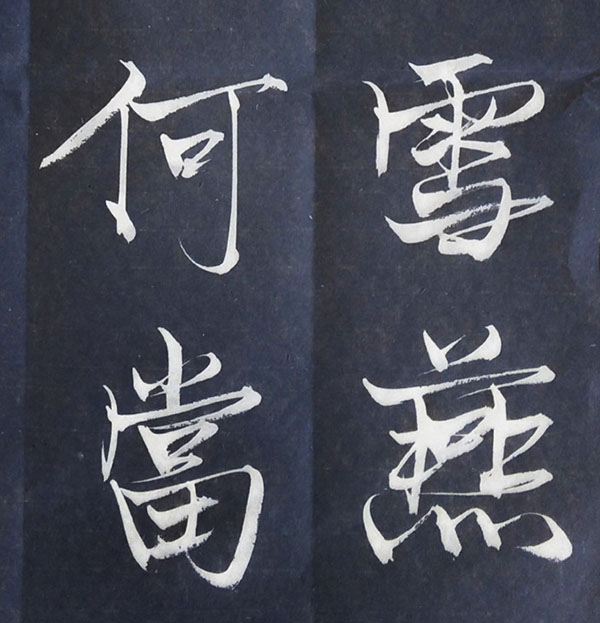 雪燕
何當